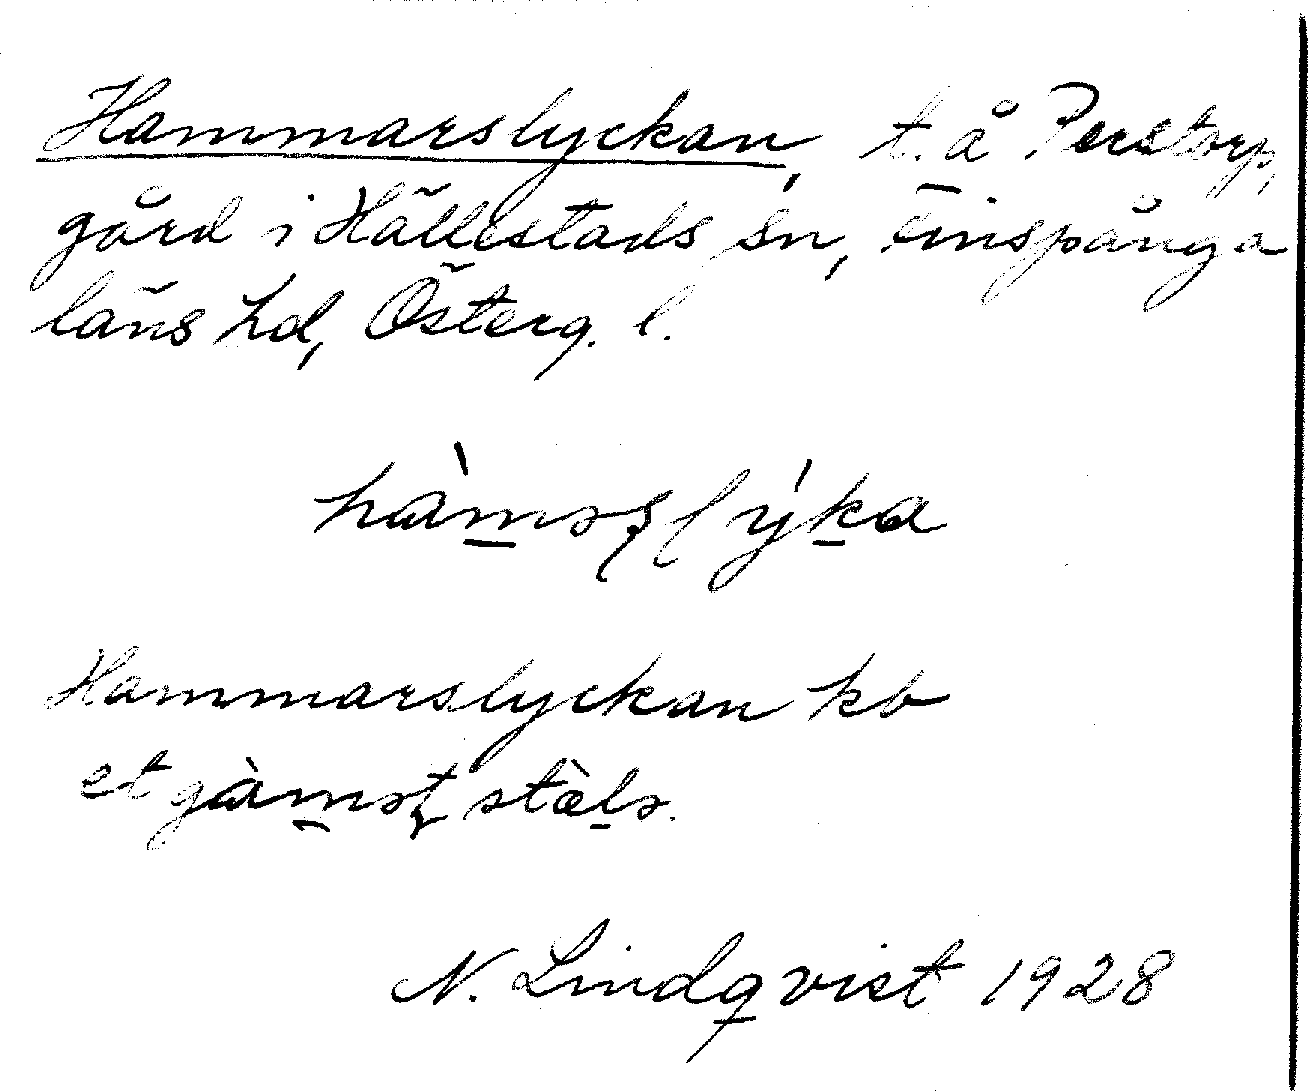 Hammarslyckan, t. å Perstorp,
gård i Hällestads sn, Finspånga
läns hd, Österg. l.
hàməʂlýka
Hammarslyckan kb
et gàməʈ stɛ̀lə.
N. Lindqvist 1928